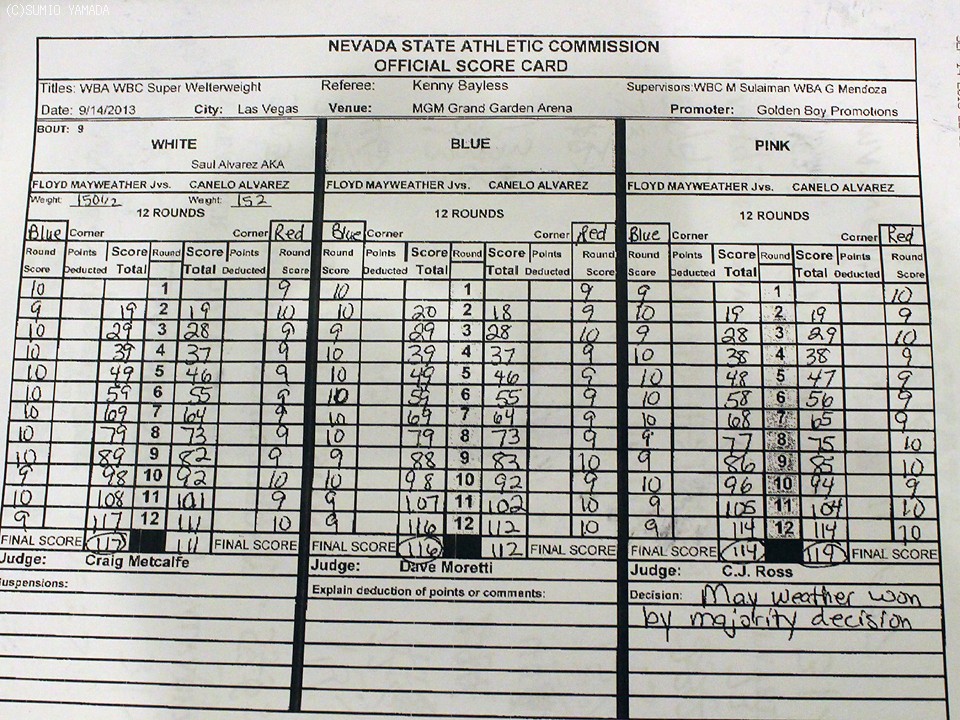 (C)SUMIO YAMADA
NEVADA STATE ATHLETIC COMMISSION
OFFICIAL SCORE CARD
Titles: WBA WBC Super Welterweight Referee: Kenny Bayless Supervisors: WBC M Sulaiman WBA G Mendoza
Date: 9/14/2013 City: Las Vegas Venue: MGM Grand Garden Arena Promoter: Golden Boy Promotions
BOUT: 9
WHITE BLUE PINK
Saul Alvarez AKA
FLOYD MAYWEATHER Jvs. CANELO ALVAREZ FLOYD MAYWEATHER Jvs. CANELO ALVAREZ FLOYD MAYWEATHER Jvs. CANELO ALVAREZ
Weight: 150 1/2 Weight: 152
12 ROUNDS 12 ROUNDS 12 ROUNDS
Blue Corner Corner Red Blue Corner Corner Red Blue Corner Corner Red
Round Points Score Round Score Points Round Round Points Score Round Score Points Round Round Points Score Round Score Points Round
Score Deducted Total Total Deducted Score Score Deducted Total Total Deducted Score Score Deducted Total Total Deducted Score
10 1 9 10 1 9 9 1 10
9 19 2 19 10 10 20 2 18 9 10 19 2 19 9
10 29 3 28 9 9 29 3 28 10 9 28 3 29 10
10 39 4 37 9 10 39 4 37 9 10 38 4 38 9
10 49 5 46 9 10 49 5 46 9 10 48 5 47 9
10 59 6 55 9 10 59 6 55 9 10 58 6 56 9
10 69 7 64 9 10 69 7 64 9 10 68 7 65 9
10 79 8 73 9 10 79 8 73 9 9 77 8 75 10
10 89 9 82 9 9 88 9 83 10 9 86 9 85 10
9 98 10 92 10 10 98 10 92 9 10 96 10 94 9
10 108 11 101 9 9 107 11 102 10 9 105 11 104 10
9 117 12 111 10 9 116 12 112 10 9 114 12 114 10
FINAL SCORE 117 111 FINAL SCORE FINAL SCORE 116 112 FINAL SCORE FINAL SCORE 114 114 FINAL SCORE
Judge: Craig Metcalfe Judge: Dave Moretti Judge: C.J. Ross
uspensions: Explain deduction of points or comments: Decision: Mayweather won
by majority decision